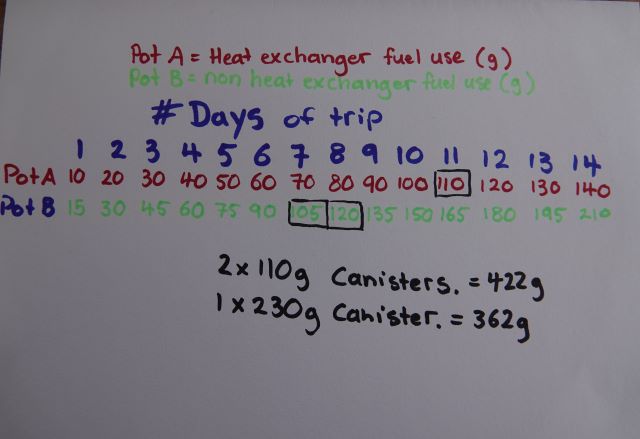 Pot A = Heat exchanger fuel use (g)
Pot B = non heat exchanger fuel use (g)
# Days of trip
1 2 3 4 5 6 7 8 9 10 11 12 13 14
Pot A 10 20 30 40 50 60 70 80 90 100 110 120 130 140
Pot B 15 30 45 60 75 90 105 120 135 150 165 180 195 210
2 x 110g Canisters. = 422g
1 x 230g Canister. = 362g